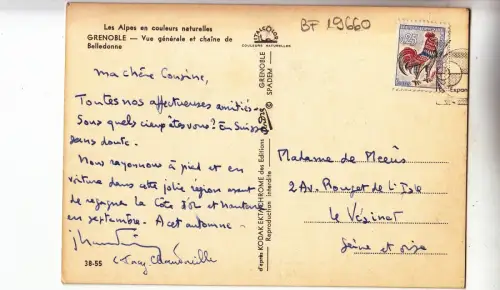 Les Alpes en couleurs naturelles
GRENOBLE — Vue générale et chaîne de
Belledonne
COULEURS NATURELLES
BF 19660
0,25
Ma chère Cousine,
Toutes nos affectueuses amitiés.
Sous quels cieux êtes vous? En Suisse
sans doute.
Nous rayonnons à pied et en
voiture dans cette jolie région avant
de regagner la Côte d'Or et Nanteuil
en septembre. A cet automne -
38-55
d'après KODAK EKTACHROME des Editions
Reproduction interdite
GRENOBLE
© SPADEM
Madame de Meeûs
2 Av. Rouget de l'Isle
Le Vézinet
Seine et Oise